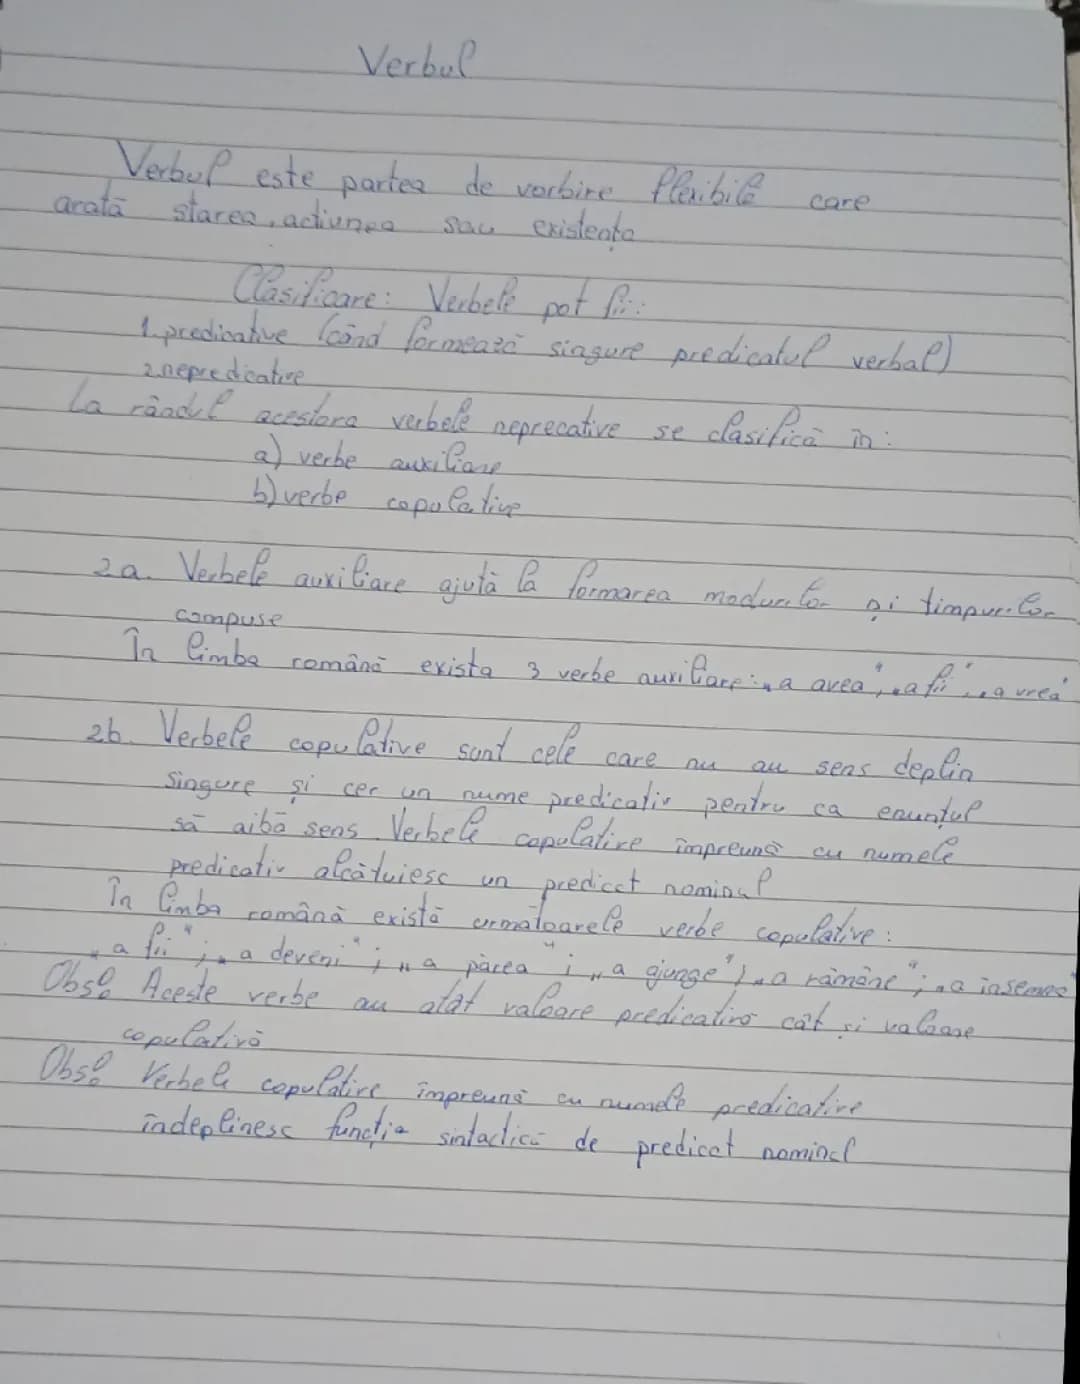 Verbul
Verbul este partea de vorbire flexibilă care
arată starea, acțiunea sau existența
Clasificare: Verbele pot fii:
1. predicative (când formează singure predicatul verbal)
2. nepredicative
La rândul acestora verbele neprecative se clasifică în:
a) verbe auxiliare
b) verbe copulative
2a. Verbele auxiliare ajută la formarea modurilor și timpurilor
compuse
În limba română exista 3 verbe auxiliare: „a avea", „a fii", „a vrea"
2b. Verbele copulative sunt cele care nu au sens deplin
singure și cer un nume predicativ pentru ca enunțul
să aibă sens. Verbele copulative împreună cu numele
predicativ alcătuiesc un predicat nominal
În limba română există urmatoarele verbe copulative:
„a fii"; „a deveni"; „a părea"; „a ajunge"; „a rămâne"; „a însemna
Obs! Aceste verbe au atât valoare predicativă cât și valoare
copulativă
Obs! Verbele copulative împreună cu numele predicative
îndeplinesc funcția sintactică de predicat nominal